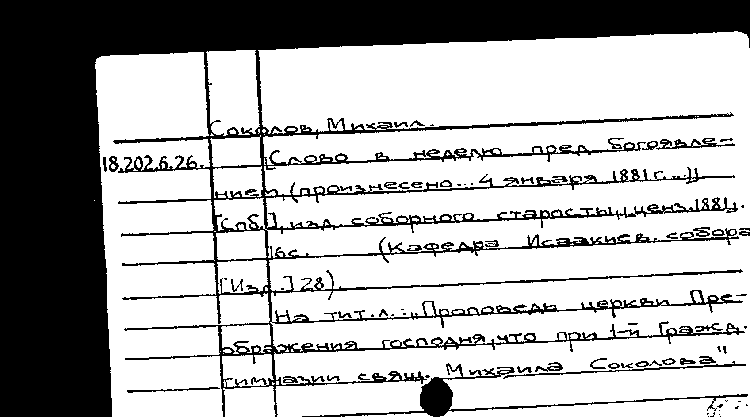 Соколов, Михаил.
18.202.6.26. Слово в неделю пред богоявле-
нием, (произнесено... 4 января 1881 г...)
[Спб.], изд. соборного старосты, ценз. 1881.
16с. (Кафедра Исаакиев. собора
[Изд.] 28).
На тит.л.: "Проповедь церкви Пре-
ображения господня, что при 1-й Гражд.
гимназии свящ. Михаила Соколова".